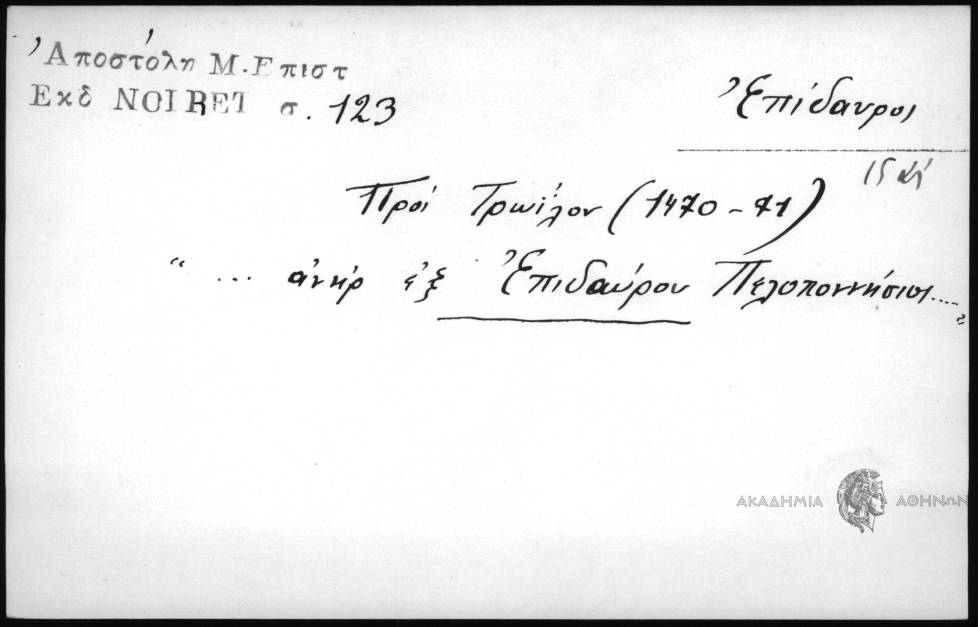 Ἀποστόλη Μ. Επιστ
Εκδ NOIRET σ. 123
Ἐπίδαυρος
Πρὸς Τρωίλον (1470-71)
“ ... ἀνὴρ ἐξ Ἐπιδαύρου Πελοποννήσιος....”
ΑΚΑΔΗΜΙΑ ΑΘΗΝΩΝ